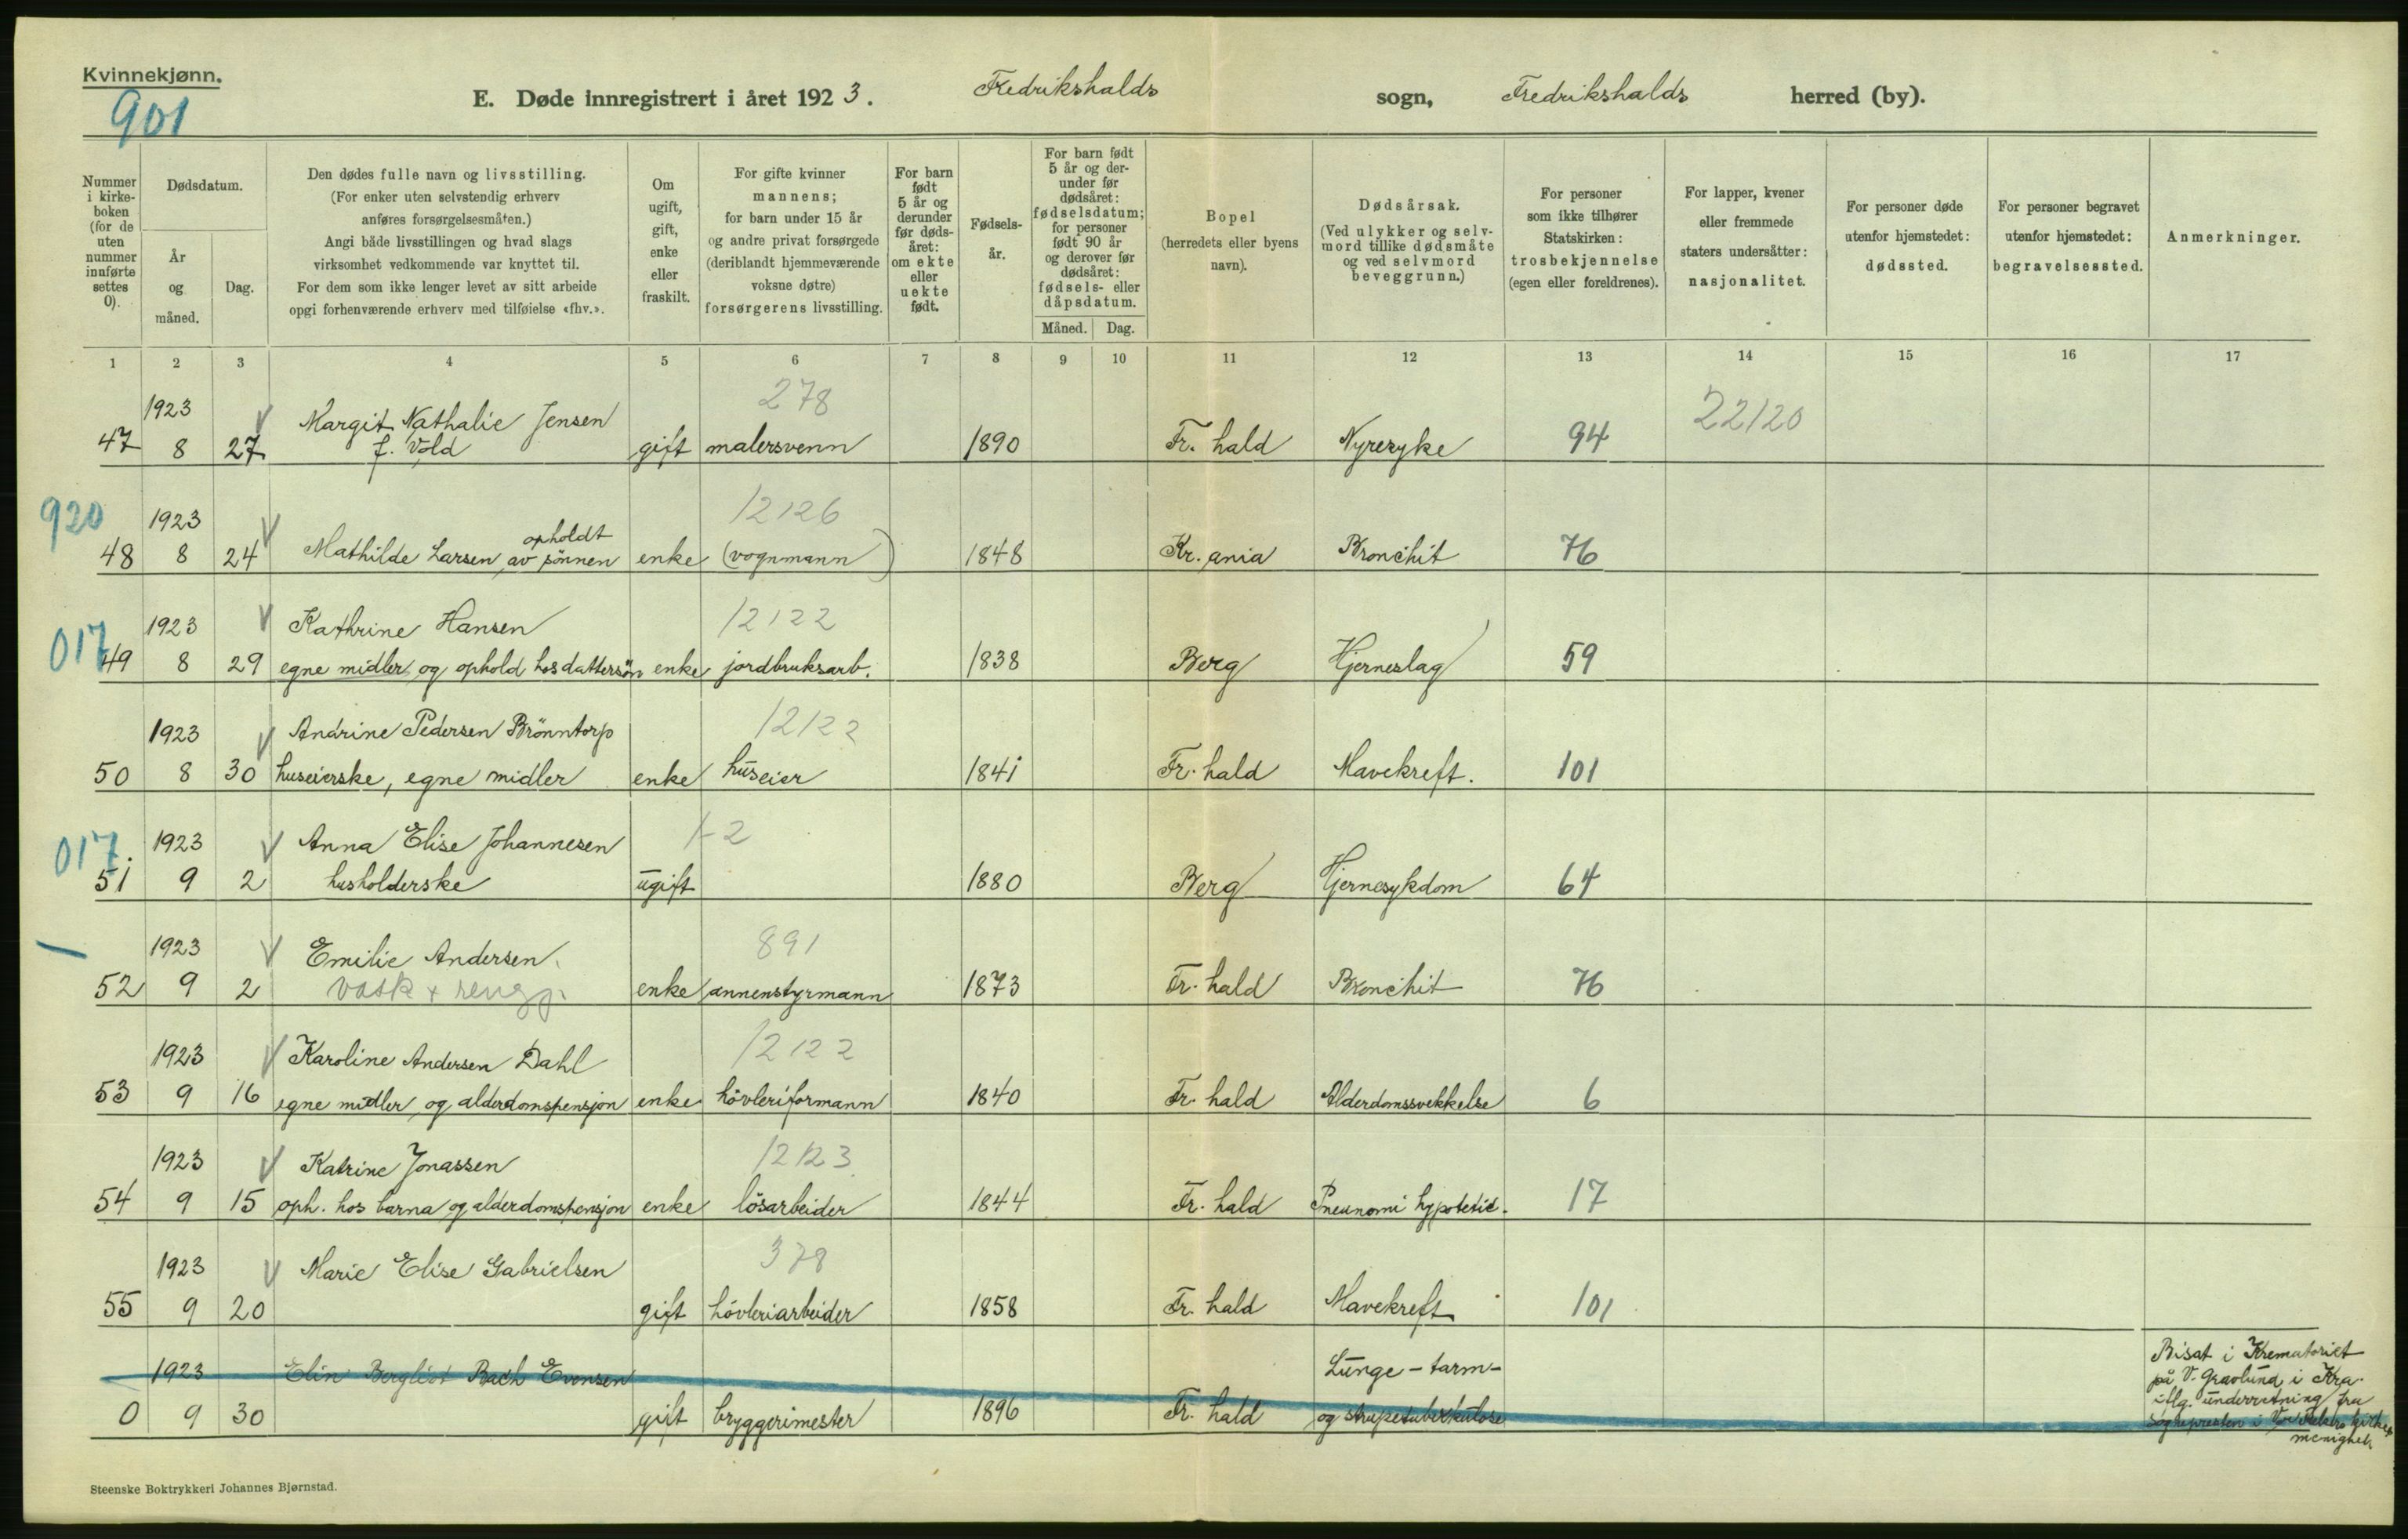 Kvinnekjønn.
901
E. Døde innregistrert i året 1923. Fredrikshalds sogn, Fredrikshalds herred (by).
Nummer i kirke-boken (for de uten nummer innførte settes 0).
Dødsdatum.
År og måned.
Dag.
Den dødes fulle navn og livsstilling.
(For enker uten selvstendig erhverv
anføres forsørgelsesmåten.)
Angi både livsstillingen og hvad slags
virksomhet vedkommende var knyttet til.
For dem som ikke lenger levet av sitt arbeide
opgi forhenværende erhverv med tilføielse «fhv.».
Om ugift, gift, enke eller fraskilt.
For gifte kvinner
mannens;
for barn under 15 år
og andre privat forsørgede
(deriblandt hjemmeværende
voksne døtre)
forsørgerens livsstilling.
For barn født 5 år og derunder før døds-året: om ekte eller uekte født.
Fødsels-år.
For barn født
5 år og der-
under før
dødsåret:
fødselsdatum;
for personer
født 90 år
og derover før
dødsåret:
fødsels- eller
dåpsdatum.
Måned. Dag.
Bopel
(herredets eller byens
navn).
Dødsårsak.
(Ved ulykker og selv-
mord tillike dødsmåte
og ved selvmord
beveggrunn.)
For personer
som ikke tilhører
Statskirken:
trosbekjennelse
(egen eller foreldrenes).
For lapper, kvener
eller fremmede
staters undersåtter:
nasjonalitet.
For personer døde
utenfor hjemstedet:
dødssted.
For personer begravet
utenfor hjemstedet:
begravelsessted.
Anmerkninger.
1 2 3 4 5 6 7 8 9 10 11 12 13 14 15 16 17
1923 Margit Nathalie Jensen 278 22120
47 8 27 f. Vold gift malersvenn 1890 Fr. hald Nyresyke 94
920 1923 opholdt 12126
48 8 24 Mathilde Larsen av sönnen enke (vognmann) 1848 Kr. ania Bronchit 76
017 1923 Kathrine Hansen 12122
49 8 29 egne midler og ophold hos dattersön enke jordbruksarb. 1838 Berg Hjerneslag 59
1923 Andrine Pedersen Brönntorp 12122
50 8 30 huseierske, egne midler enke huseier 1841 Fr. hald Mavekreft. 101
017 1923 Anna Elise Johannesen 1-2
51 9 2 husholderske ugift 1880 Berg Hjernesykdom 64
1923 Emilie Andersen 891
52 9 2 vask + rengj. enke annenstyrmann 1873 Fr. hald Bronchit 76
1923 Karoline Andersen Dahl 12122
53 9 16 egne midler og alderdomspensjon enke hövleriformann 1840 Fr. hald Alderdomssvekkelse 6
1923 Katrine Jonassen 12123
54 9 15 oph. hos barna og alderdomspensjon enke lösarbeider 1844 Fr. hald Pneunomi hypotetic. 17
1923 Marie Elise Gabrielsen 378
55 9 20 gift hövleriarbeider 1858 Fr. hald Mavekreft 101
1923 Elin Bergliot Bach Evensen Lunge - tarm-
0 9 30 gift bryggerimester 1896 Fr. hald og strupetuberkulose
Bisat i Krematoriet
på V. Gravlund i Kra.
iflg. underretning fra
sognepresten i Vor Frelsers kirkes
menighet
Steenske Boktrykkeri Johannes Bjørnstad.